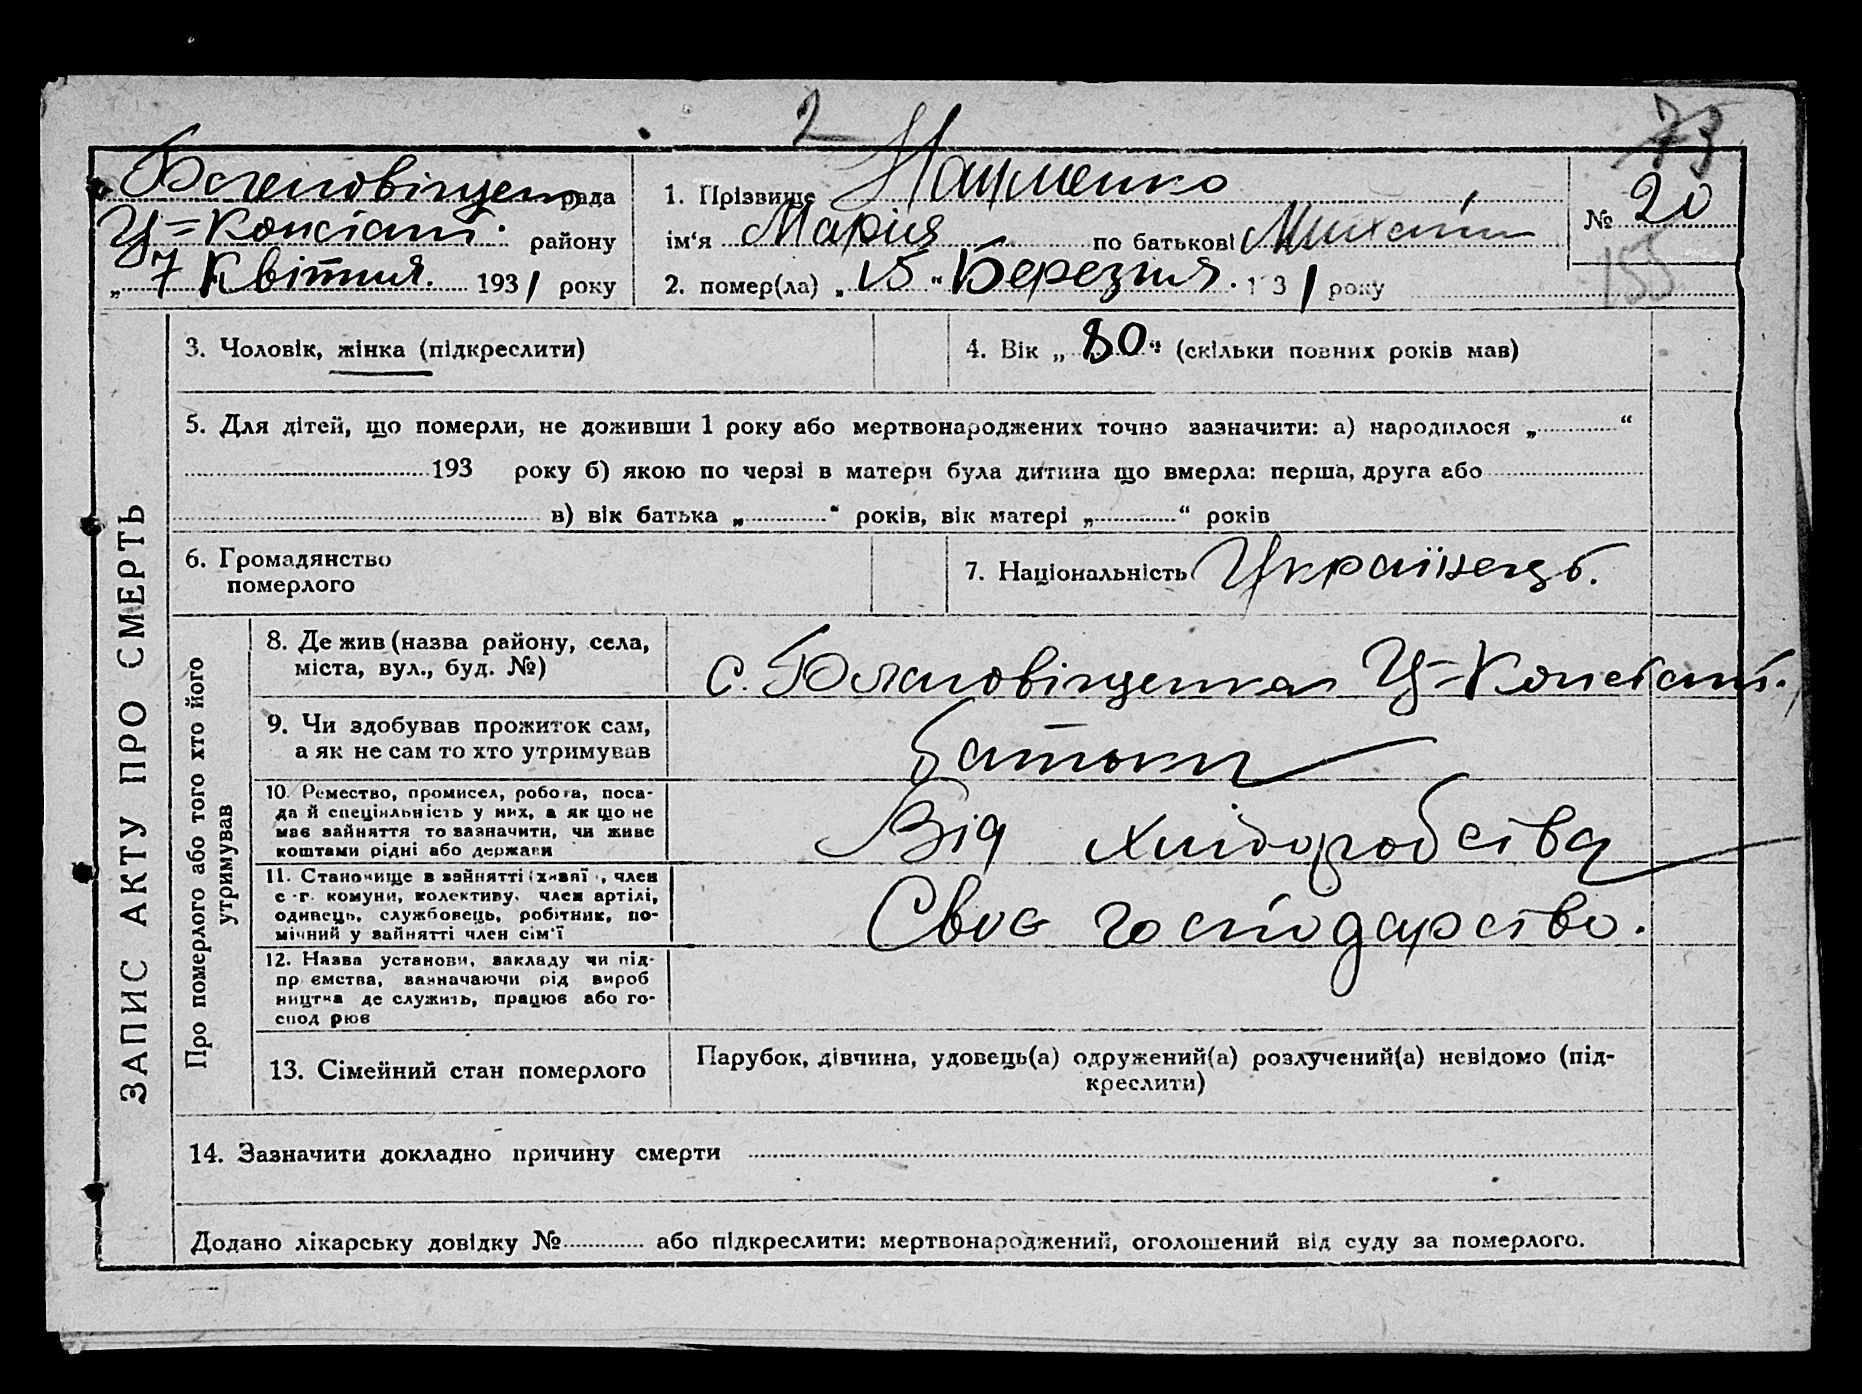 2
73
Благовіщен рада
Ц=Констант. району
„ 7 Квітня. 1931 року
1. Прізвище Науменко
ім‘я Марія по батькові
2. помер(ла) „ 15 “ Березня. 1 31 року
№ 20
155
3. Чоловік, жінка (підкреслити)
4. Вік „ 80 “ (скільки повних років мав)
5. Для дітей, що померли, не доживши 1 року або мертвонароджених точно зазначити: а) народилося „ “
193 року б) якою по черзі в матери була дитина що вмерла: перша, друга або
в) вік батька „ “ років, вік матері „ “ років
6. Громадянство
померлого
7. Національність Українець.
ЗАПИС АКТУ ПРО СМЕРТЬ
Про померлого або того хто його
утримував
8. Де жив (назва району, села,
міста, вул., буд. №)
с. Благовіщенка Ц=Констант.
9. Чи здобував прожиток сам,
а як не сам то хто утримував
батьки
10. Ремество, промисел, робота, поса-
да й спеціяльність у них, а як що не
має зайняття то зазначити, чи живе
коштами рідні або держави
Від хліборобства
11. Становище в зайнятті (хазяї, член
с-г. комуни, колективу, член артілі,
одинець, службовець, робітник, по-
мічний у зайнятті член сім‘ї
Своє господарство.
12. Назва установи, закладу чи під-
пр ємства, зазначаючи рід вироб
ництва де служить, працює або го-
спод рює
13. Сімейний стан померлого
Парубок, дівчина, удовець(а) одружений(а) розлучений(а) невідомо (під-
креслити)
14. Зазначити докладно причину смерти
Додано лікарську довідку № або підкреслити: мертвонароджений, оголошений від суду за померлого.